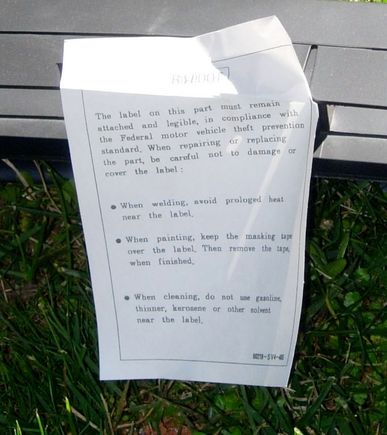 The label on this part must remain
attached and legible, in compliance with
the Federal motor vehicle theft prevention
standard. When repairing or replacing
the part, be careful not to damage or
cover the label :
● When welding, avoid prologed heat
near the label.
● When painting, keep the masking tape
over the label. Then remove the tape,
when finished.
● When cleaning, do not use gasoline,
thinner, kerosene or other solvent
near the label.